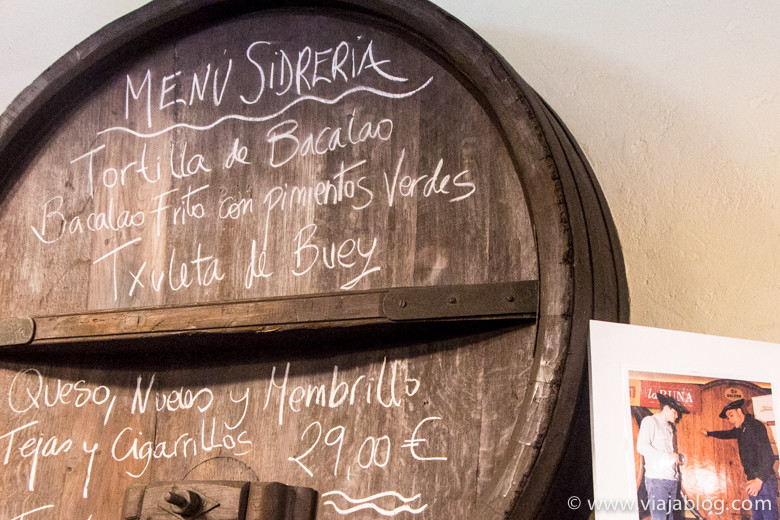 MENÚ SIDRERÍA
Tortilla de Bacalao
Bacalao Frito con pimientos Verdes
Txuleta de Buey
Queso, Nueces y Membrillo
Tejas y Cigarrillos 29,00 €
la RUNA
© www.viajablog.com